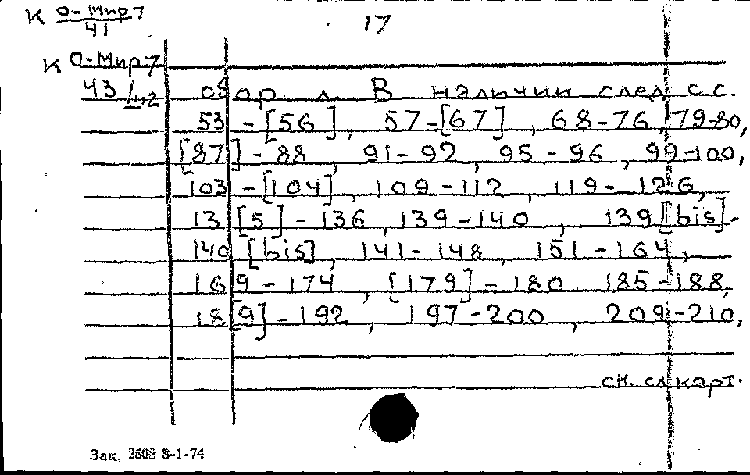 К О-Мир7 17
41
К О-Мир7
43
обор. л. В наличии след. с.с.
53-[56], 57-[67], 68-76, 79-80,
[87]-88, 91-92, 95-96, 99-100,
103-[104], 109-112, 119-126,
13[5]-136, 139-140, 139[bis]-
140[bis], 141-148, 151-164,
169-174, [179]-180 185-188,
18[9]-192, 197-200, 209-210,
см. сл. карт.
Зак. 3-1-74